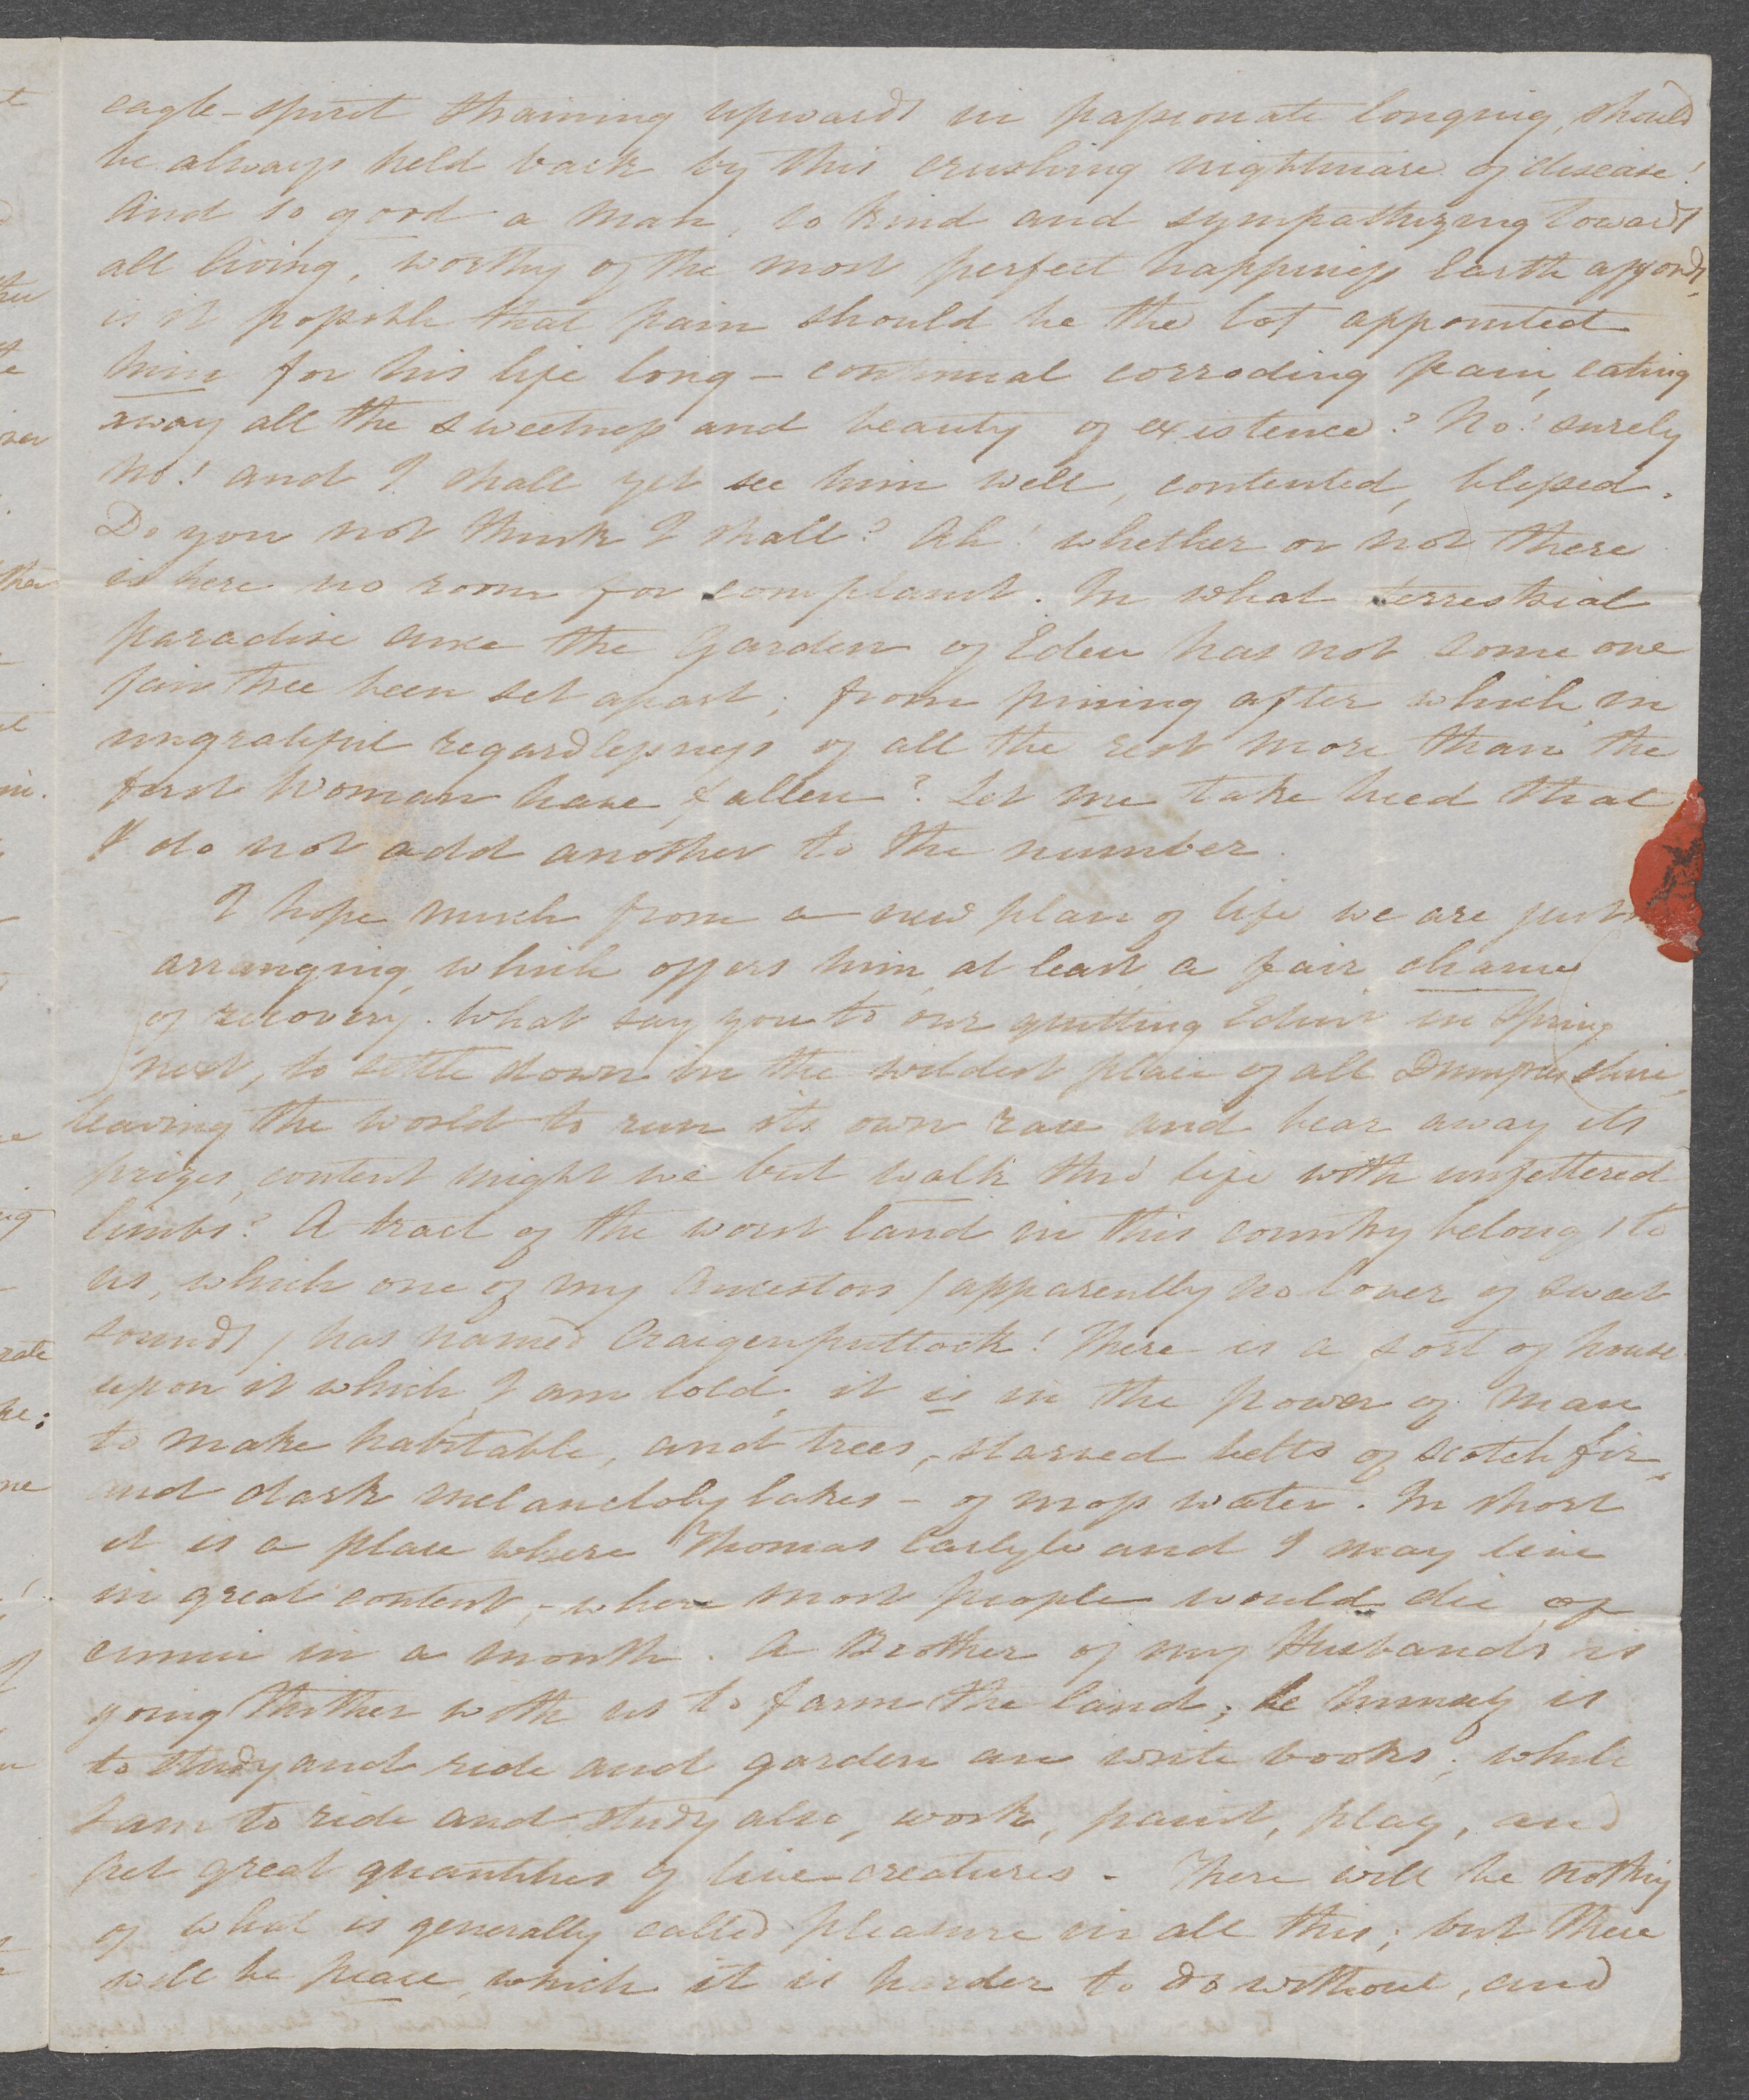 eagle-spirit straining upwards in passionate longing, should
be always held back by this crushing nightmare of disease!
And so good a man, so kind and sympathizing towards
all living, worthy of the most perfect happiness Earth affords,
is it possible that pain should be the lot appointed
him for his life long – continual corroding pain, eating
away all the sweetness and beauty of existence? No! surely
no! and I shall yet see him well, contented, blessed.
Do you not think I shall? Ah! whether or not there
is here no room for complaint. In what terrestrial
paradise since the Garden of Eden has not some one
fair tree been set apart; from pining after which in
ungrateful regardlessness of all the rest more than the
first Woman have fallen? Let me take heed that
I do not add another to the number.
I hope much from a new plan of life we are just
arranging, which offers him at least a fair chance
of recovery. What say you to our quitting Edinr in Spring
next, to settle down in the wildest place of all Dumfriesshire,
leaving the world to run its own race and bear away its
prizes, content might we but walk thro' life with unfettered
limbs? A tract of the worst land in this country belongs to
us, which one of my Ancestors (apparently no lover of sweet
sounds) has named Craigenputtoch! There is a sort of house
upon it which, I am told, it is in the power of man
to make habitable, and trees, – starved belts of Scotch fir –
and dark melancholy lakes – of moss water. In short
it is a place where Thomas Carlyle and I may live
in great content, – where most people would die of
ennui in a month. A Brother of my Husbands is
going thither with us to farm the land; he himself is
to study and ride and garden an write books; while
I am to ride and study also, work, paint, play, and
pet great quantities of live-creatures – There will be nothing
of what is generally called pleasure in all this; but there
will be peace, which it is harder to do without, and